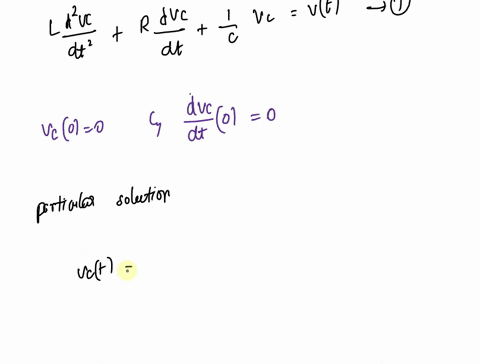 L d²vc/dt² + R dvc/dt + 1/c vc = v(t) → ①
vc(0)=0 , dvc/dt (0) = 0
particular solution
vc(t) =